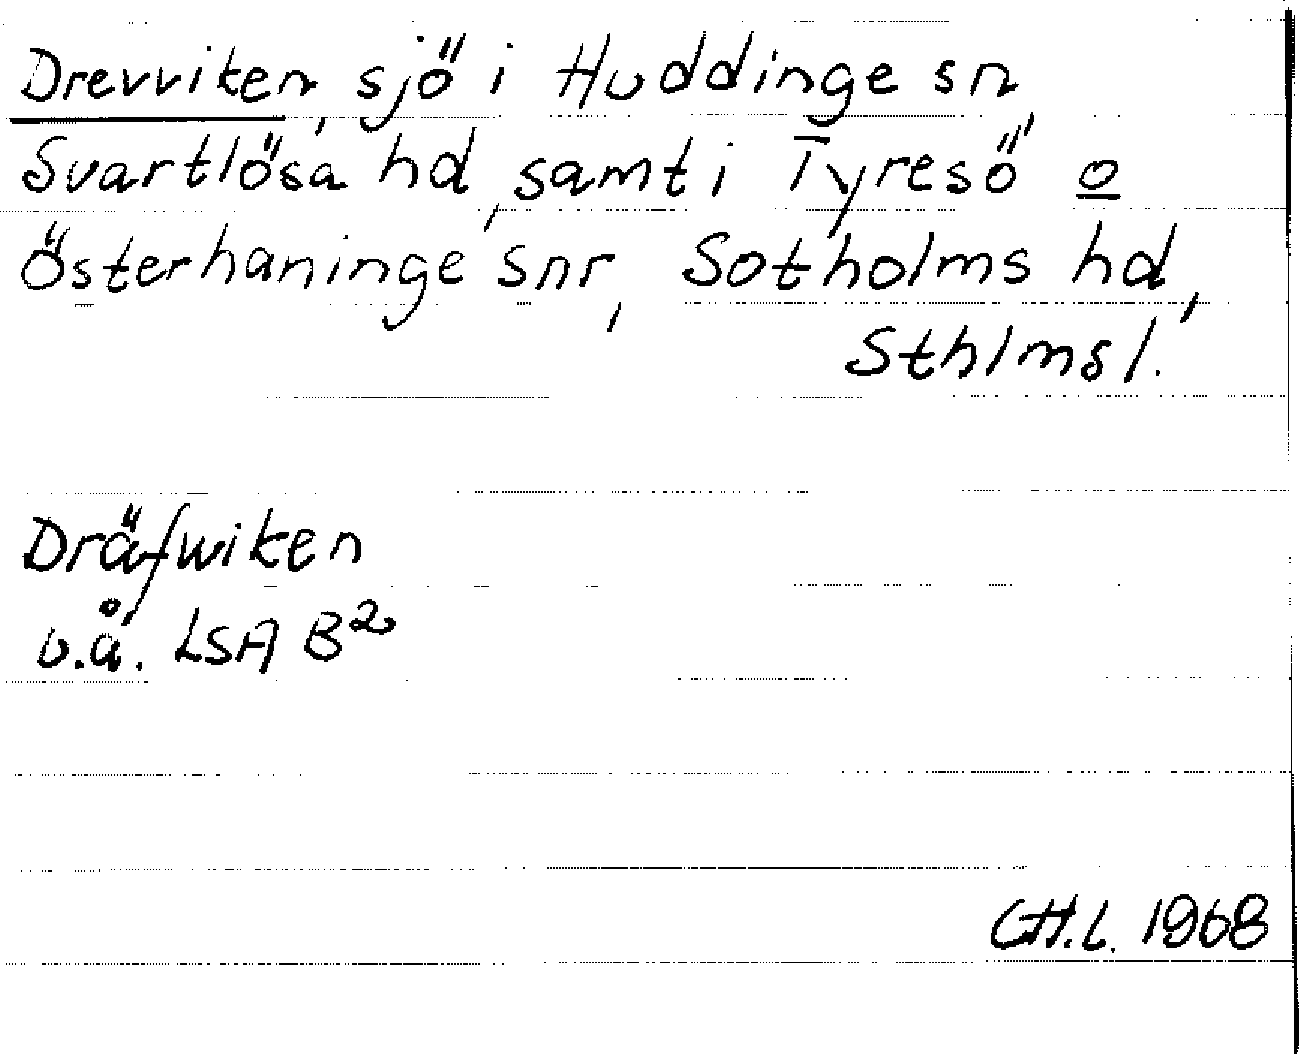 Drevviken, sjö i Huddinge sn,
Svartlösa hd, samt i Tyresö o
Österhaninge snr, Sotholms hd,
Sthlms l.
Dräfwiken
u.å. LSA B²
CH.L. 1968